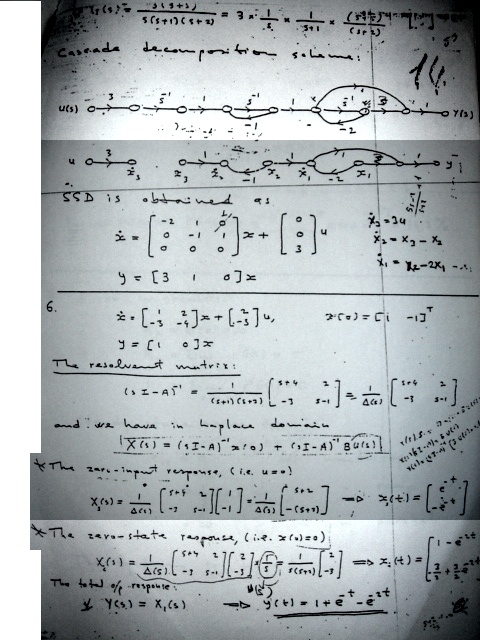 (s) = 3(s+5) / s(s+1)(s+2) = 3 × 1/s × 1/s+1 × / (s+2)
Cascade decomposition scheme:
14
U(s) 3 s⁻¹ 1 s⁻¹ 1 s⁻¹ 1 Y(s)
-1 -2
u 3 ẋ₃ x₃ 1 ẋ₂ x₂ 1 ẋ₁ x₁ 1 y
-1 -2
SSD is obtained as
ẋ = [-2 1 ; 0 -1 1 ; 0 0 0] x + [0 ; 0 ; 3] u
ẋ₃ = 3u
ẋ₂ = x₃ - x₂
ẋ₁ = x₂ - 2x₁
y = [3 1 0] x
6. ẋ = [1 2 ; -3 -4] x + [2 ; -3] u, x(0) = [1 -1]ᵀ
y = [1 0] x
The resolvent matrix:
(sI-A)⁻¹ = 1/(s+1)(s+2) [s+4 2 ; -3 s-1] = 1/Δ(s) [s+4 2 ; -3 s-1]
and we have in Laplace domain
X(s) = (sI-A)⁻¹ x(0) + (sI-A)⁻¹ B U(s)
* The zero-input response, (i.e. u=0)
(s) = 1/Δ(s) [s+4 2 ; -3 s-1] [1 ; -1] = 1/Δ(s) [s+2 ; -(s+2)] ⟹ (t) = [e⁻ᵗ ; -e⁻ᵗ]
* The zero-state response, (i.e. x(0)=0)
(s) = 1/Δ(s) [s+4 2 ; -3 s-1] [2 ; -3] 1/s = 1/s(s+2) [2 ; -3] ⟹ (t) = [1 - e⁻²ᵗ ; -3/2 + 3/2 e⁻²ᵗ
The total o/p response: U(s)
Y(s) = X₁(s) ⟹ y(t) = 1 + e⁻ᵗ - e⁻²ᵗ